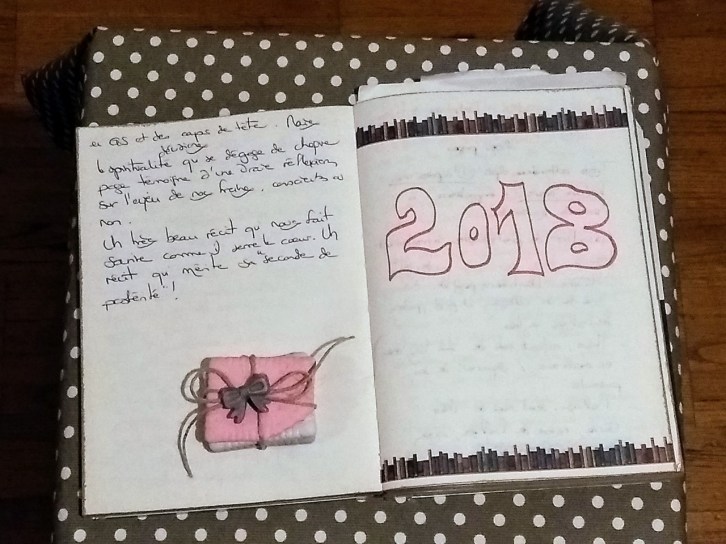 et des corps de tête. Mais
pessime
spiritualité qui se dégage de chaque
page témoigne d'une vraie réflexion
sur l'enjeu de nos freins, conscients ou
non.
Un très beau récit qui nous fait
sourire comme il serre le cœur. Un
récit qui mérite sa "seconde de
postérité" !
2018